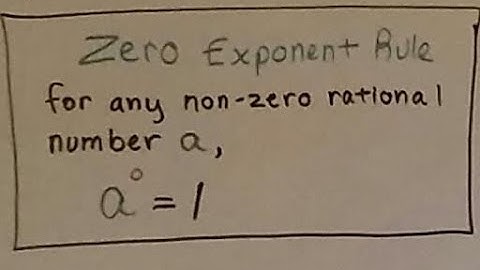 Zero Exponent Rule
for any non-zero rational
number a,
a⁰ = 1